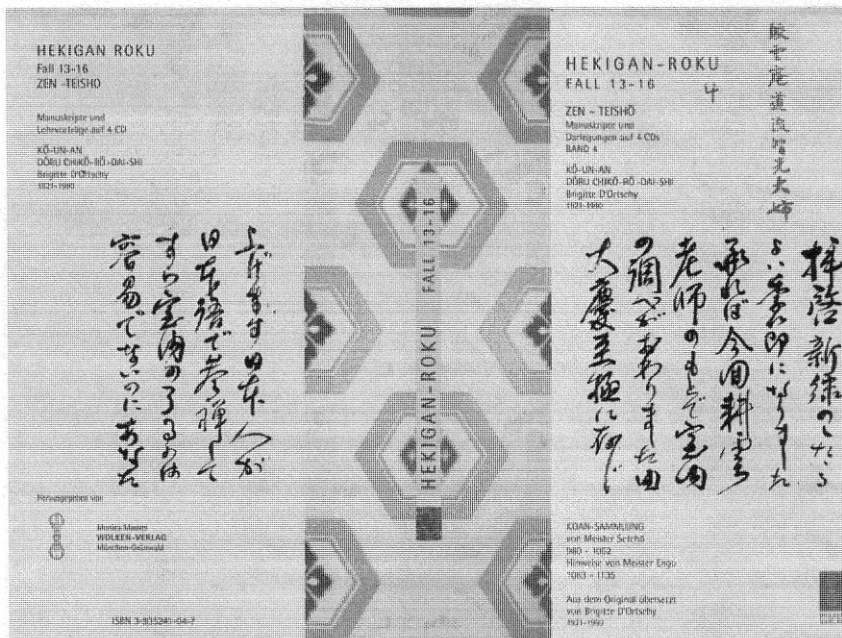 HEKIGAN ROKU
Fall 13-16
ZEN -TEISHO
Manuskripte und
Lehrvorträge auf 4 CD
KŌ-UN-AN
DŌRU CHIKŌ-RŌ-DAI-SHI
Brigitte D'Ortschy
1921-1990
上げます 日本人が
日本語で参禅して
すら室内の
容易でないのにあなた
Herausgegeben von
WOLKEN-VERLAG
München-Grünwald
HEKIGAN-ROKU FALL 13-16
HEKIGAN-ROKU
FALL 13-16
4
ZEN - TEISHŌ
Manuskripte und
Darlegungen auf 4 CDs
BAND 4
KŌ-UN-AN
DŌRU CHIKŌ-RŌ-DAI-SHI
Brigitte D'Ortschy
1921-1990
雲庵道流智光大姉
拝啓 新緑のしたゝる
よい季節になりました
承れば今回耕雲
老師のもとで室内
の調べがおわりました由
大慶至極に存じ
KOAN-SAMMLUNG
von Meister Setchō
980 - 1052
Hinweise von Meister Engo
1063 - 1135
Aus dem Original übersetzt
von Brigitte D'Ortschy
1921-1990